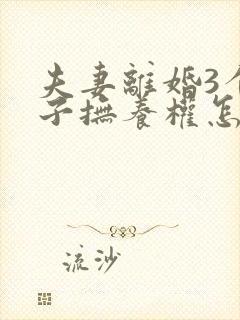 夫妻離婚3個
子撫養權怎
流沙